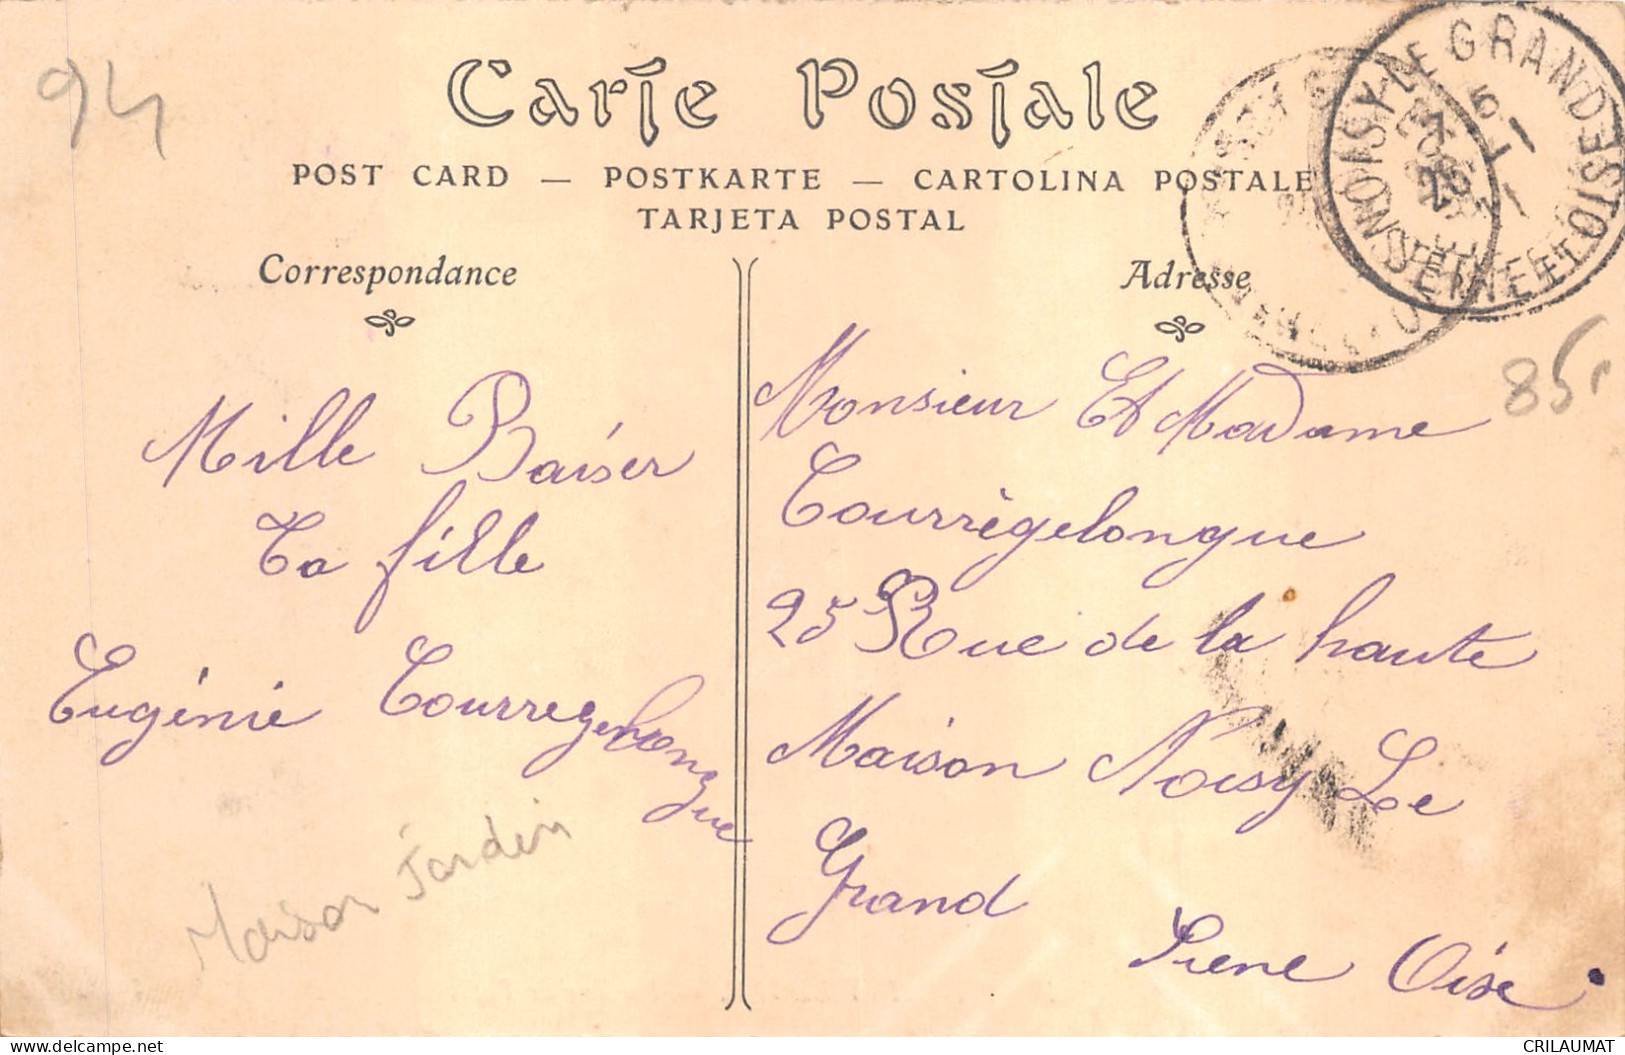 94
Carte Postale
POST CARD — POSTKARTE — CARTOLINA POSTALE
TARJETA POSTAL
NOISY-LE-GRAND
SEINE-ET-OISE
Correspondance
Mille Baiser
Ta fille
Eugénie Courregelongue
Maison Jardin
Adresse
85
Monsieur Et Madame
Courrègelongue
25 Rue de la haute
Maison Noisy Le
Grand
Seine Oise
CRILAUMAT